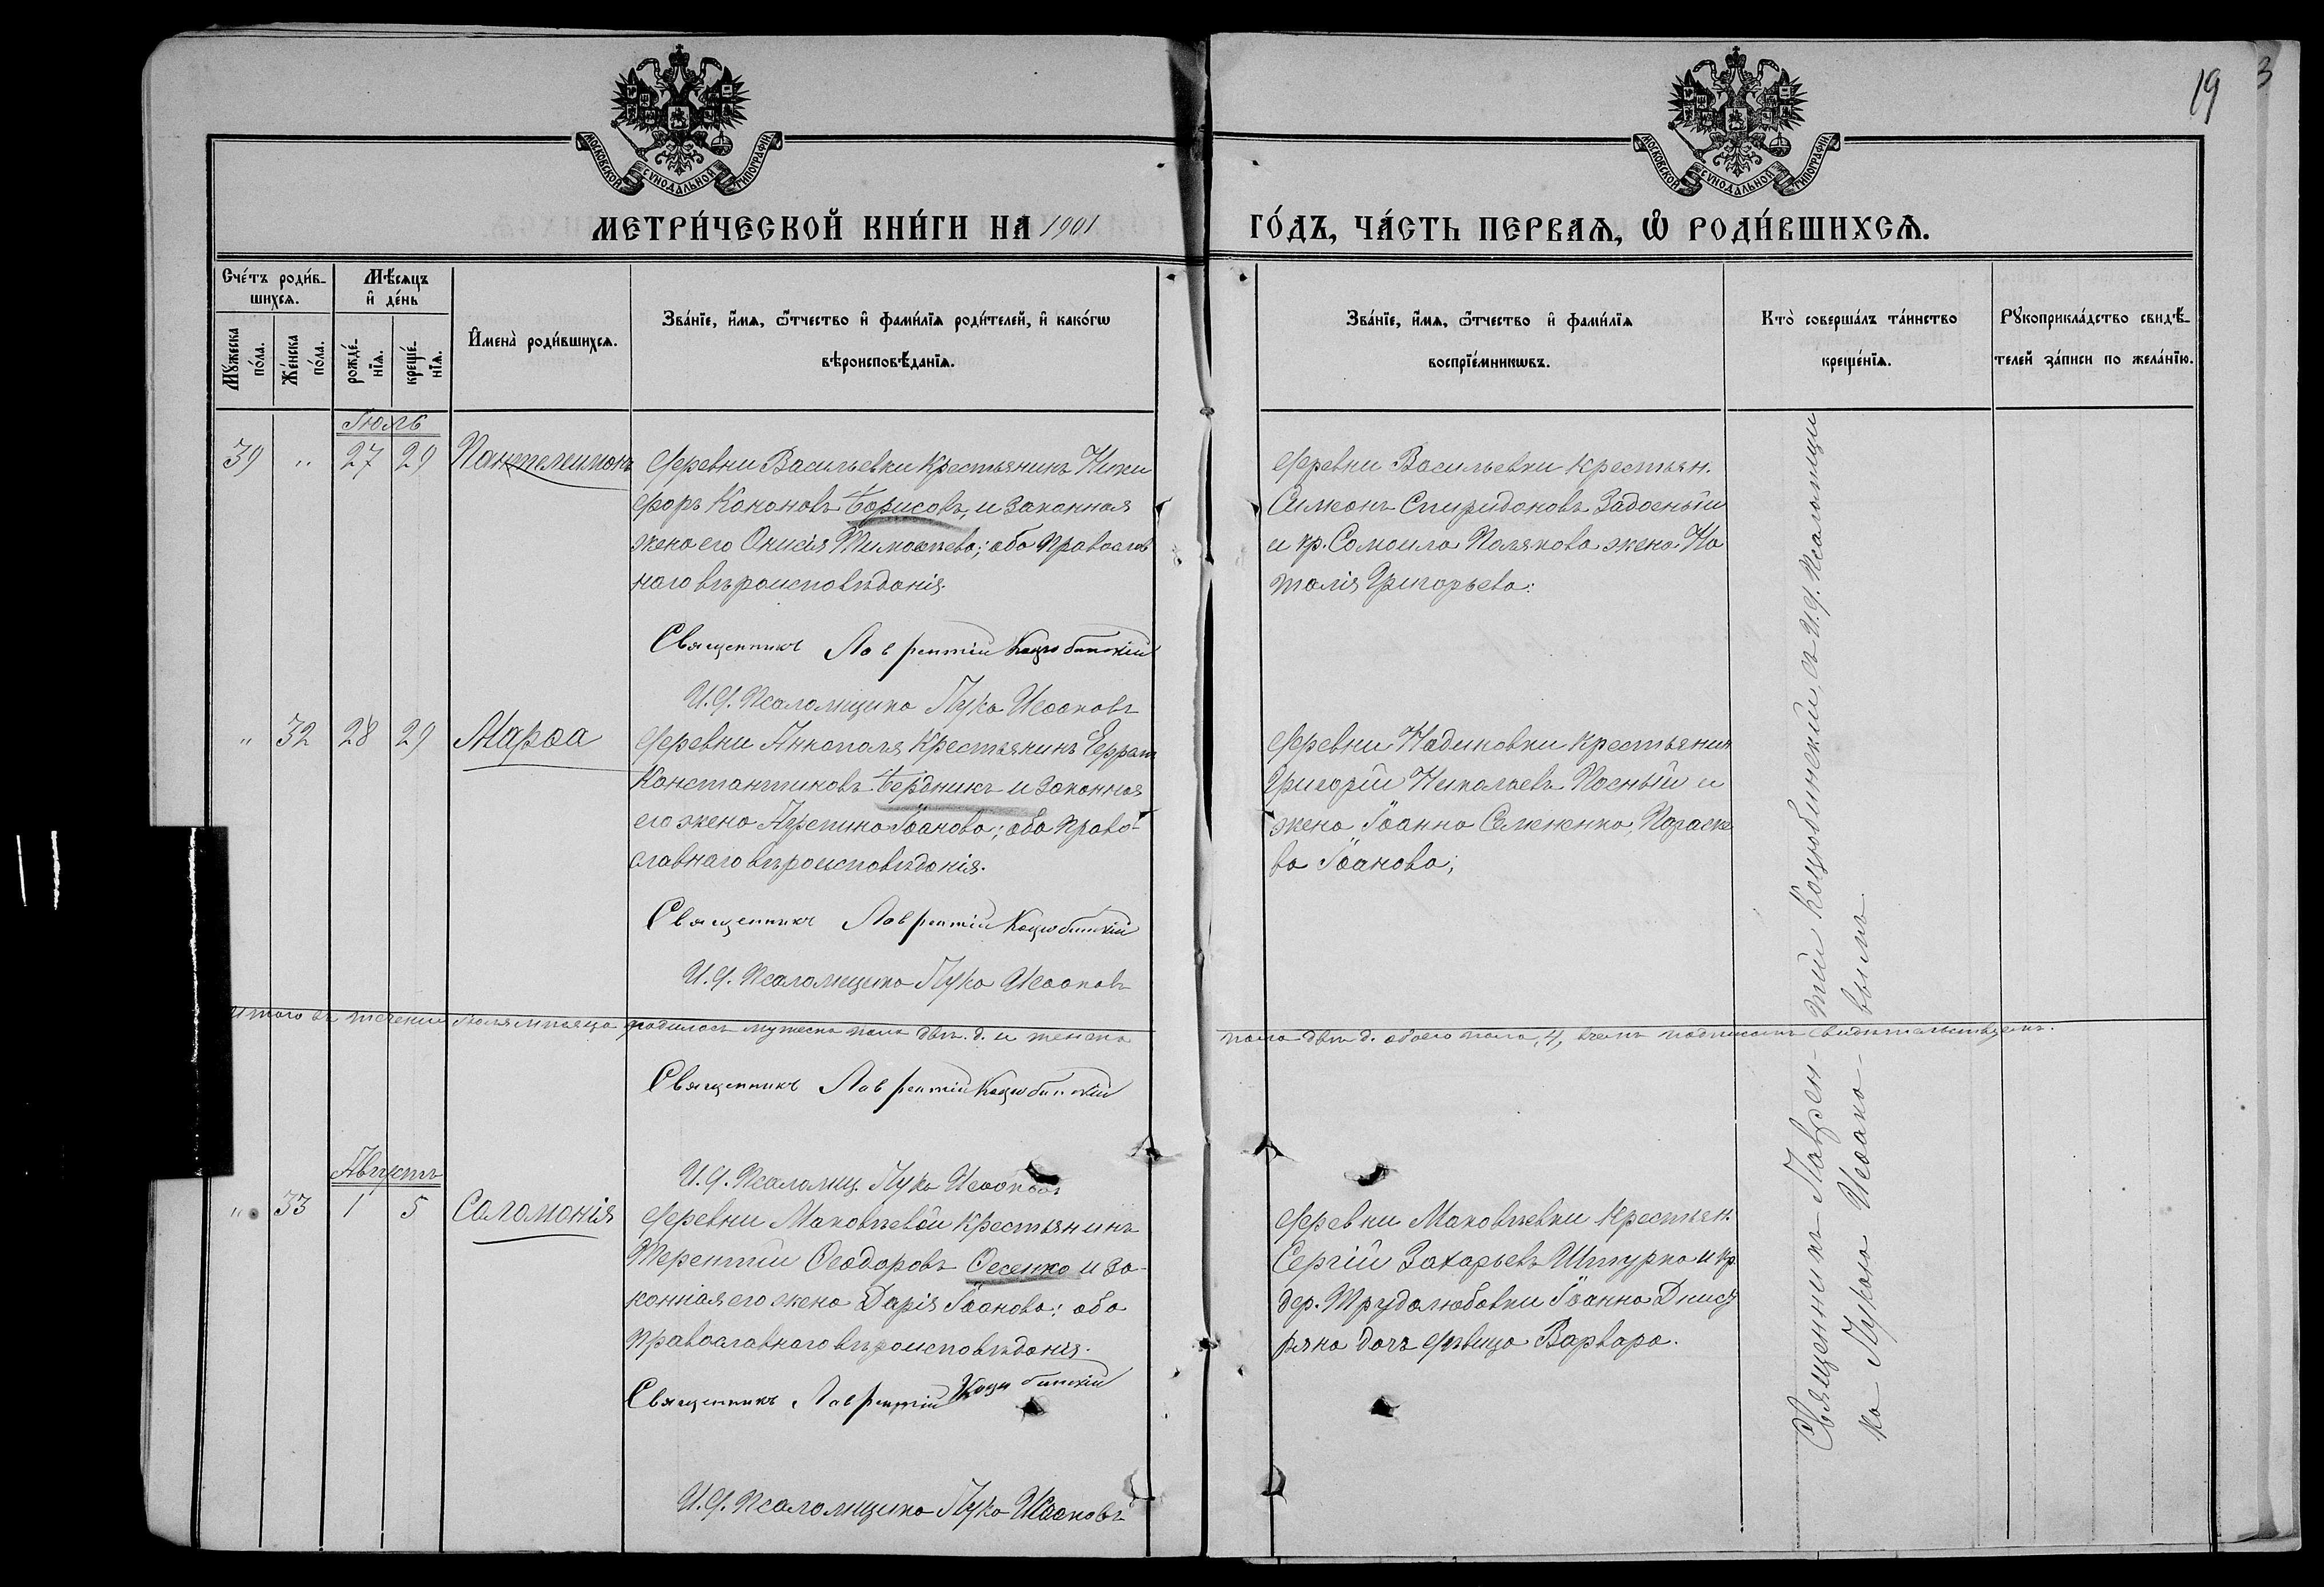 19
3
МОСКОВСКОЙ СѴНОДАЛЬНОЙ ТИПОГРАФІИ.
МОСКОВСКОЙ СѴНОДАЛЬНОЙ ТИПОГРАФІИ.
МЕТРИ́ЧЕСКОЙ КНИ́ГИ НА 1901
ГО́ДЪ, ЧА́СТЬ ПЕРВАѦ, Ѡ҆ РОДИ́ВШИХСѦ.
Сче́тъ роди́в-
шихсѧ.
Мѣ́сѧцъ
и҆ де́нь
Мꙋ́жеска
по́ла.
Же́нска
по́ла.
рожде́-
нїѧ.
креще́-
нїѧ.
И҆мена̀ роди́вшихсѧ.
Зва́нїе, и҆́мѧ, ѻ҆́тчество и҆ фами́лїѧ роди́телей, и҆ како́гѡ
вѣроисповѣ́данїѧ.
Зва́нїе, и҆́мѧ, ѻ҆́тчество и҆ фами́лїѧ
воспрїе́мникѡвъ.
Кто̀ соверша́лъ та́инство
креще́нїѧ.
Рꙋкоприкла́дство свидѣ́-
телей за́писи по жела́нїю.
Іюль
39 " 27 29 Пантелеимонъ
Деревни Васильевки крестьянинъ Ники
форъ Кононовъ Борисовъ, и законная
жена его Онисія Тимоѳеева; оба православ
наго вѣроисповѣданія.
Священникъ Лаврентій Коцюбинскій
И.д. Псаломщика Лука Исааковъ
Деревни Васильевки крестьян.
Симеонъ Спиридоновъ Задоеный
и кр. Самоила Полякова жена На
талія Григорьева:
" 32 28 29 Марѳа
Деревни Аннополя крестьянинъ
Константиновъ Бердникъ и законная
его жена Агрепина Іоанова; оба право-
славнаго вѣроисповѣданія.
Священникъ Лаврентій Коцюбинскій
И.д. Псаломщика Лука Исааковъ
Деревни Надиновки крестьянин
Григорій Николаевъ Посный и
жена Іоанна Семененко, Параске
ва Іоанова;
Итого въ теченіи Іюля мѣсяца родилось мужеска пола двѣ. д. и женска
пола двѣ д. обоего пола, 4, въ чемъ подписомъ свидѣтельствуемъ.
Священникъ Лаврентій Коцюбинскій
И.д. Псаломщ. Лука Исааковъ
Августъ
" 33 1 5 Саломонія
Деревни Маковѣевки крестьянинъ
Терентій Ѳеодоровъ Ѳесенко и за-
конная его жена Дарія Іоанова; оба
православнаго вѣроисповѣданія.
Священникъ Лаврентій Коцюбинскій
И.д. Псаломщика Лука Исааковъ
Деревни Маковѣевки крестьян.
Сергій Захарьевъ Штурко и кр.
дер. Трудолюбовки Іоанна
дочь дѣвица Варвара.
Священникъ Лаврен-тій Коцюбинскій, съ И.д. Псаломщи
ка Лукою Исаако-вымъ